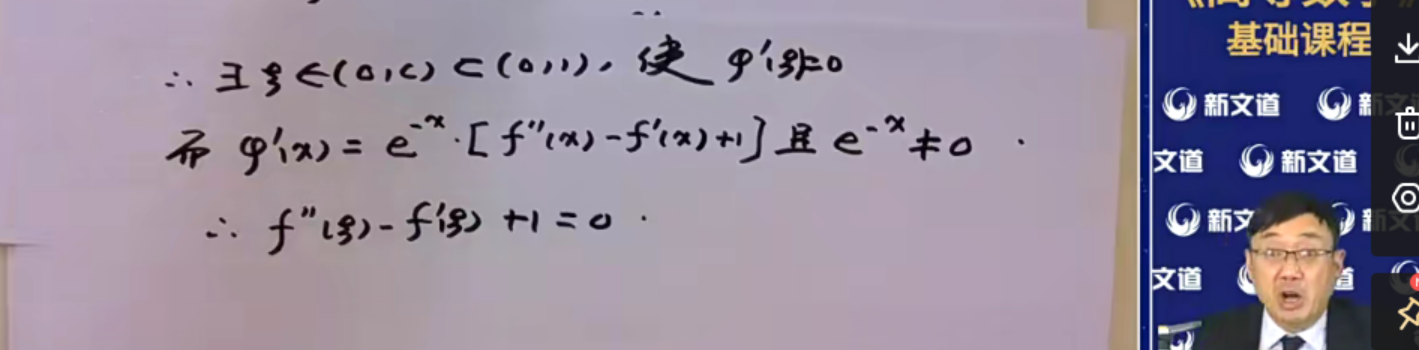 ∴ ∃ ξ∈(0,c)⊂(0,1), 使 φ'(ξ)=0
而 φ'(x) = e^{-x}·[f''(x)-f'(x)+1] 且 e^{-x}≠0.
∴ f''(ξ)-f'(ξ)+1=0.
基础课程
新文道
文道 新文道
新文
文道